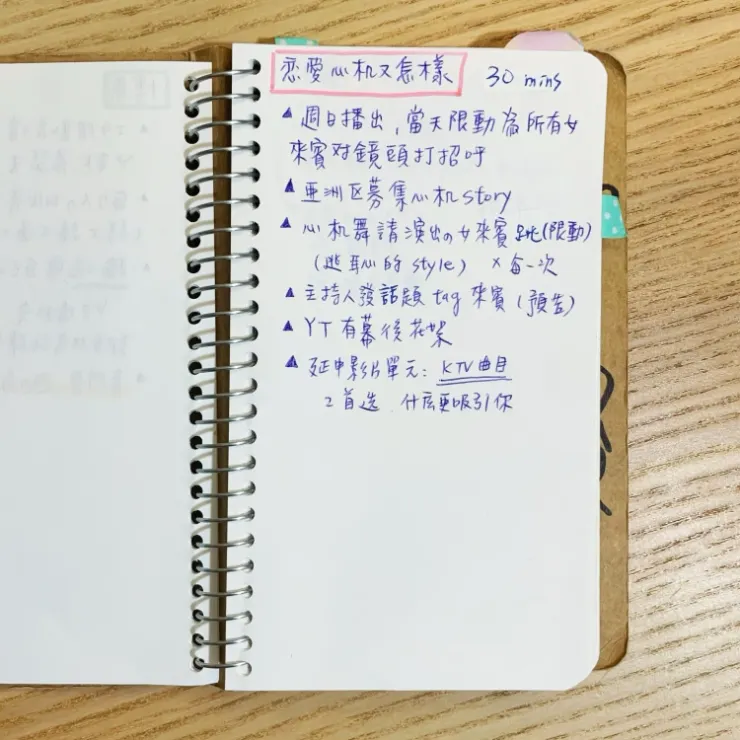 恋愛心机又怎樣 30 mins
▲ 週日播出,當天限動為所有女
來賓对鏡頭打招呼
▲ 亞洲区募集心机story
▲ 心机舞請演出の女來賓跳(限動)
(逃耳心的 style) × 每一次
▲ 主持人發話題 tag 來賓(預告)
▲ YT 有幕後花絮
▲ 延申影片單元: KTV曲目
2首选 什么更吸引你